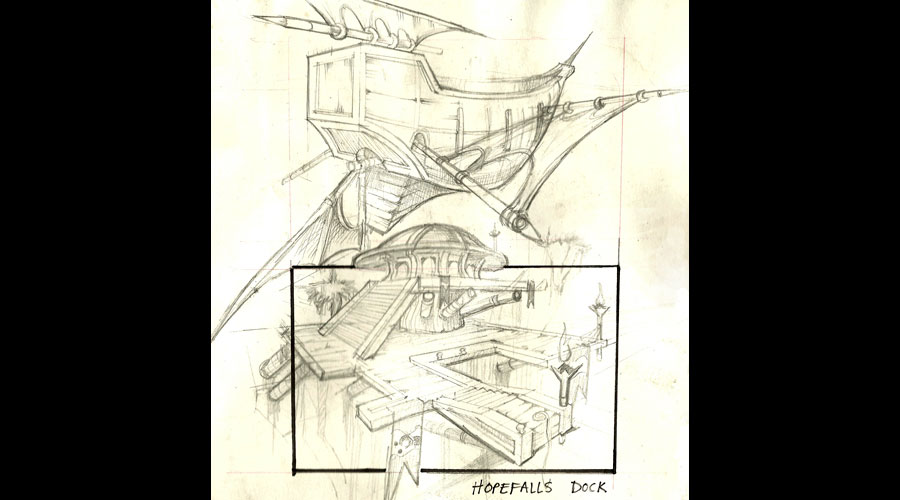 HOPEFALLS DOCK